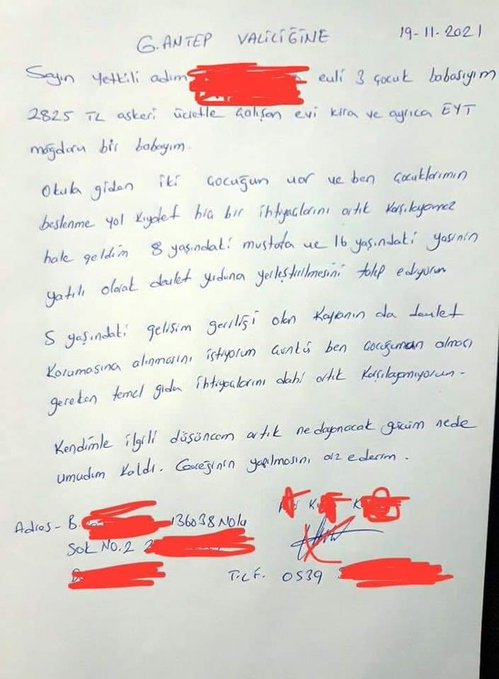 G.ANTEP VALİLİĞİNE 19-11-2021
Sayın yetkili adım evli 3 çocuk babasıyım
2825 TL askeri ücretle çalışan evi kira ve ayrıca EYT
mağduru bir babayım.
Okula giden iki çocuğum var ve ben çocuklarımın
beslenme yol kıyafet hiç bir ihtiyaçlarını artık karşılayamaz
hale geldim 8 yaşındaki mustafa ve 16 yaşındaki yasinin
yatılı olarak devlet yurduna yerleştirilmesini talep ediyorum
5 yaşındaki gelişim geriliği olan Kayranın da devlet
korumasına alınmasını istiyorum Çünkü ben çocuğuman alması
gereken temel gıda ihtiyaçlarını dahi artık karşılayamıyorum-
Kendimle ilgili düşüncem artık ne dayanacak gücüm nede
umudum kaldı. Gereğinin yapılmasını arz ederim.
Adres - B. 136038 Nolu
Sok NO.2
TLF. 0539